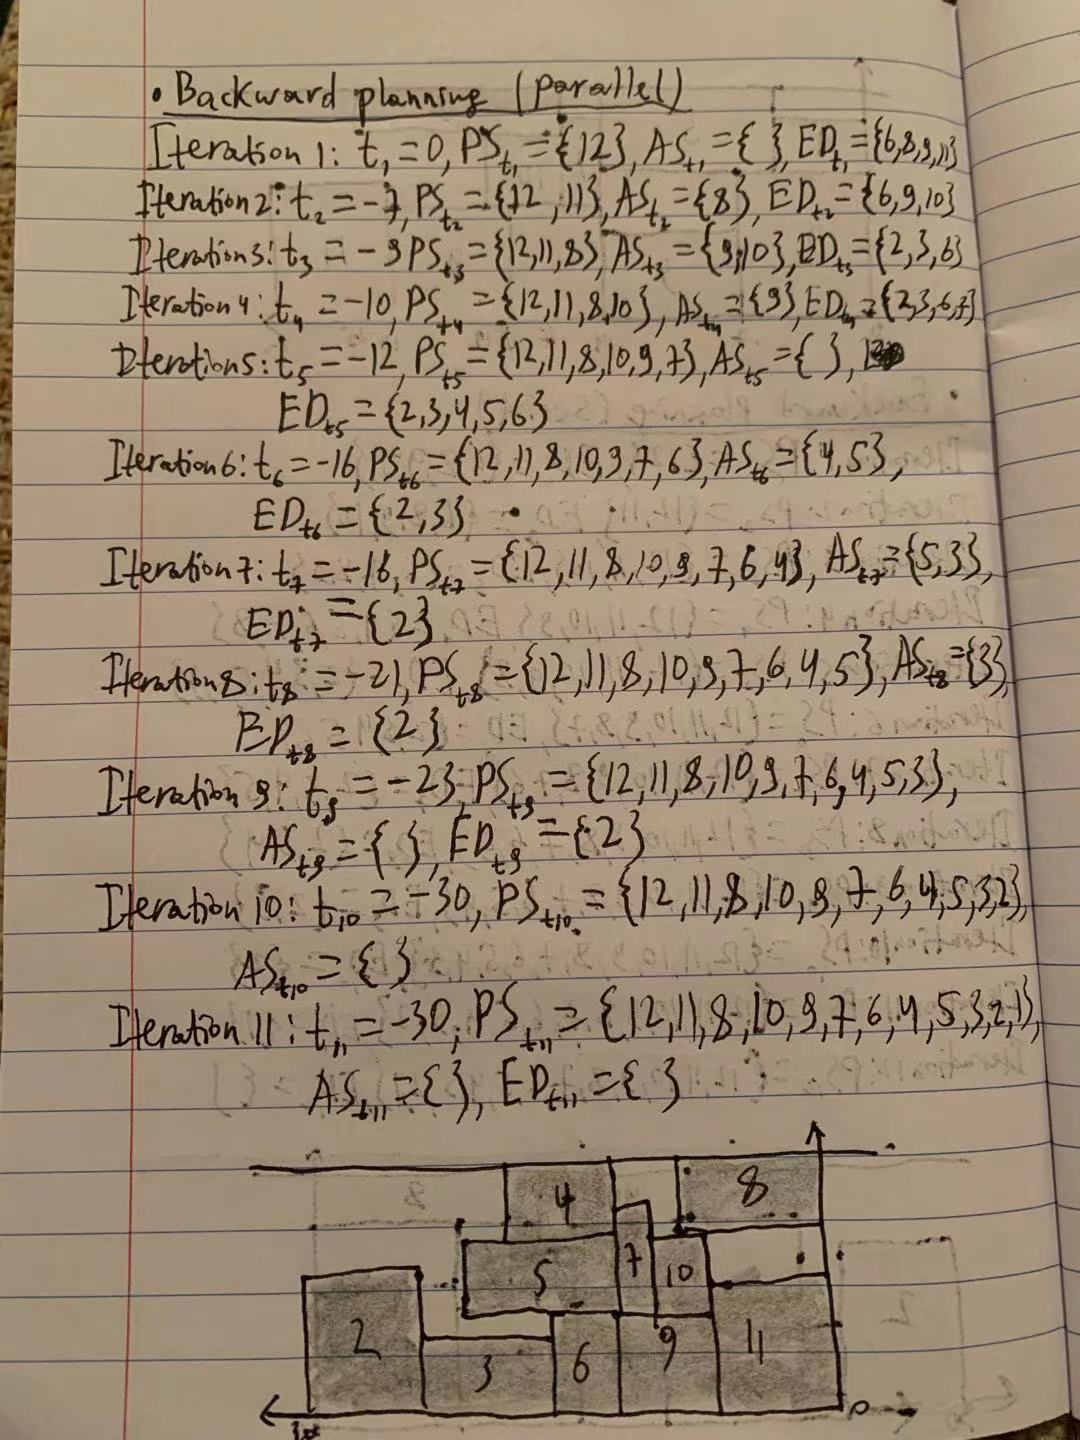 • Backward planning (parallel)
Iteration 1: t₁ = 0, PS_t₁ = {12}, AS_t₁ = { }, ED_t₁ = {6,8,9,11}
Iteration 2: t₂ = -7, PS_t₂ = {12,11}, AS_t₂ = {8}, ED_t₂ = {6,9,10}
Iteration 3: t₃ = -9 PS_t₃ = {12,11,8}, AS_t₃ = {9,10}, ED_t₃ = {2,3,6}
Iteration 4: t₄ = -10, PS_t₄ = {12,11,8,10}, AS_t₄ = {9}, ED_t₄ = {2,3,6,7}
Iteration 5: t₅ = -12, PS_t₅ = {12,11,8,10,9,7}, AS_t₅ = { },
ED_t₅ = {2,3,4,5,6}
Iteration 6: t₆ = -16, PS_t₆ = {12,11,8,10,9,7,6}, AS_t₆ = {4,5},
ED_t₆ = {2,3}
Iteration 7: t₇ = -16, PS_t₇ = {12,11,8,10,9,7,6,4}, AS_t₇ = {5,3},
ED_t₇ = {2}
Iteration 8: t₈ = -21, PS_t₈ = {12,11,8,10,9,7,6,4,5}, AS_t₈ = {3},
ED_t₈ = {2}
Iteration 9: t₉ = -23, PS_t₉ = {12,11,8,10,9,7,6,4,5,3},
AS_t₉ = { }, ED_t₉ = {2}
Iteration 10: t₁₀ = -30, PS_t₁₀ = {12,11,8,10,9,7,6,4,5,3,2},
AS_t₁₀ = { }
Iteration 11: t₁₁ = -30, PS_t₁₁ = {12,11,8,10,9,7,6,4,5,3,2,1},
AS_t₁₁ = { }, ED_t₁₁ = { }
4 8
5 7 10
2 3 6 9 11
0